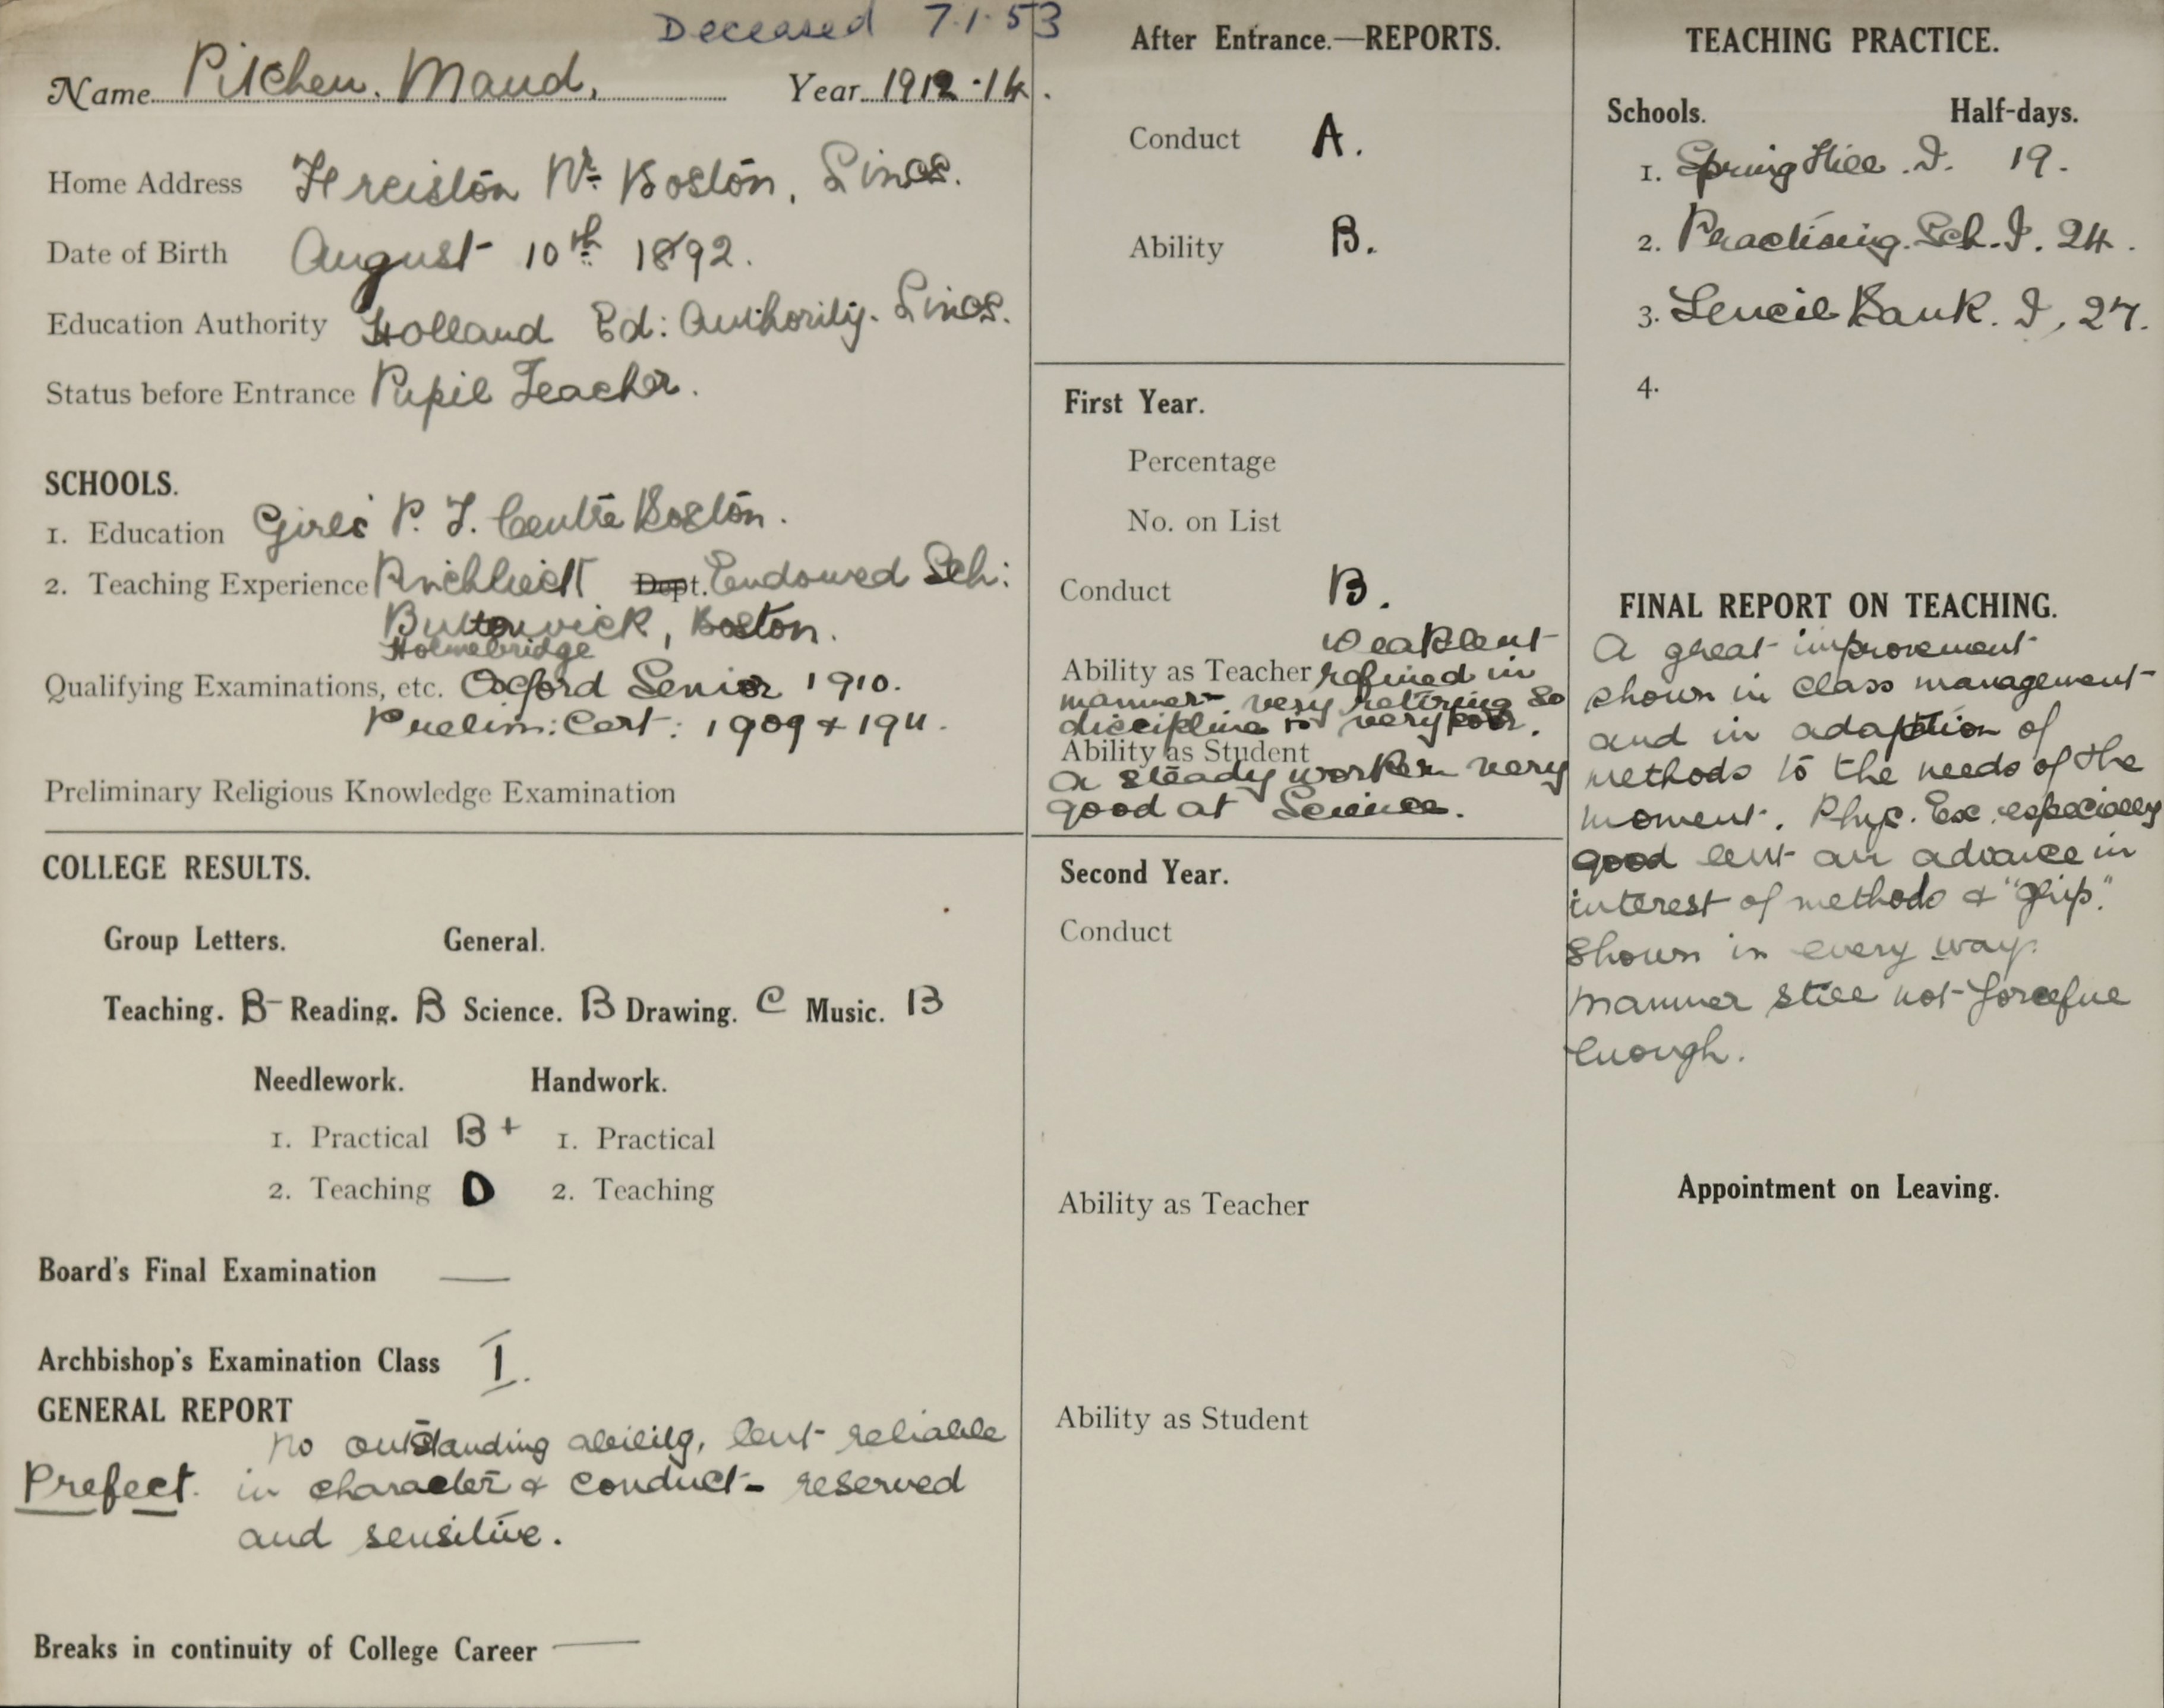 Deceased 7.1.53
Name Pilcher. Maud, Year 1912-14.
Home Address Freiston Nr. Boston, Lincs.
Date of Birth August 10th 1892.
Education Authority Holland Ed: Authority. Lincs.
Status before Entrance Pupil Teacher.
SCHOOLS.
1. Education Girls' P. T. Centre Boston.
2. Teaching Experience Dept. Endowed Sch:
Butterwick, Boston.
Holmebridge
Qualifying Examinations, etc. Oxford Senior 1910.
Prelim: Cert: 1909 & 1911.
Preliminary Religious Knowledge Examination
COLLEGE RESULTS.
Group Letters. General.
Teaching. B- Reading. B Science. B Drawing. C Music. B
Needlework. Handwork.
1. Practical B+ 1. Practical
2. Teaching D 2. Teaching
Board's Final Examination —
Archbishop's Examination Class I.
GENERAL REPORT
No outstanding ability, but reliable
Prefect. in character & conduct - reserved
and sensitive.
Breaks in continuity of College Career —
After Entrance.—REPORTS.
Conduct A.
Ability B.
First Year.
Percentage
No. on List
Conduct B.
Weak but
Ability as Teacher refined in
manner - very retiring so
discipline is very poor.
Ability as Student
A steady worker very
good at Science.
Second Year.
Conduct
Ability as Teacher
Ability as Student
TEACHING PRACTICE.
Schools. Half-days.
1. Spring Hill. I. 19.
2. Practising. Sch. I. 24.
3. Bank. I, 27.
4.
FINAL REPORT ON TEACHING.
A great improvement
shown in class management
and in adaption of
methods to the needs of the
moment. Phys. Exc. especially
good but an advance in
interest of methods & "grip".
shown in every way.
Manner still not forceful
enough.
Appointment on Leaving.